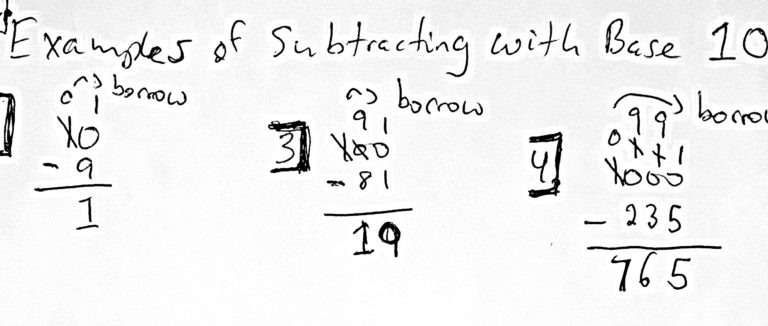 Examples of Subtracting with Base 10
borrow
0 1
10
- 9
1
3
borrow
9 1
100
- 81
19
4
borro
9 9
0 1
1000
- 235
765